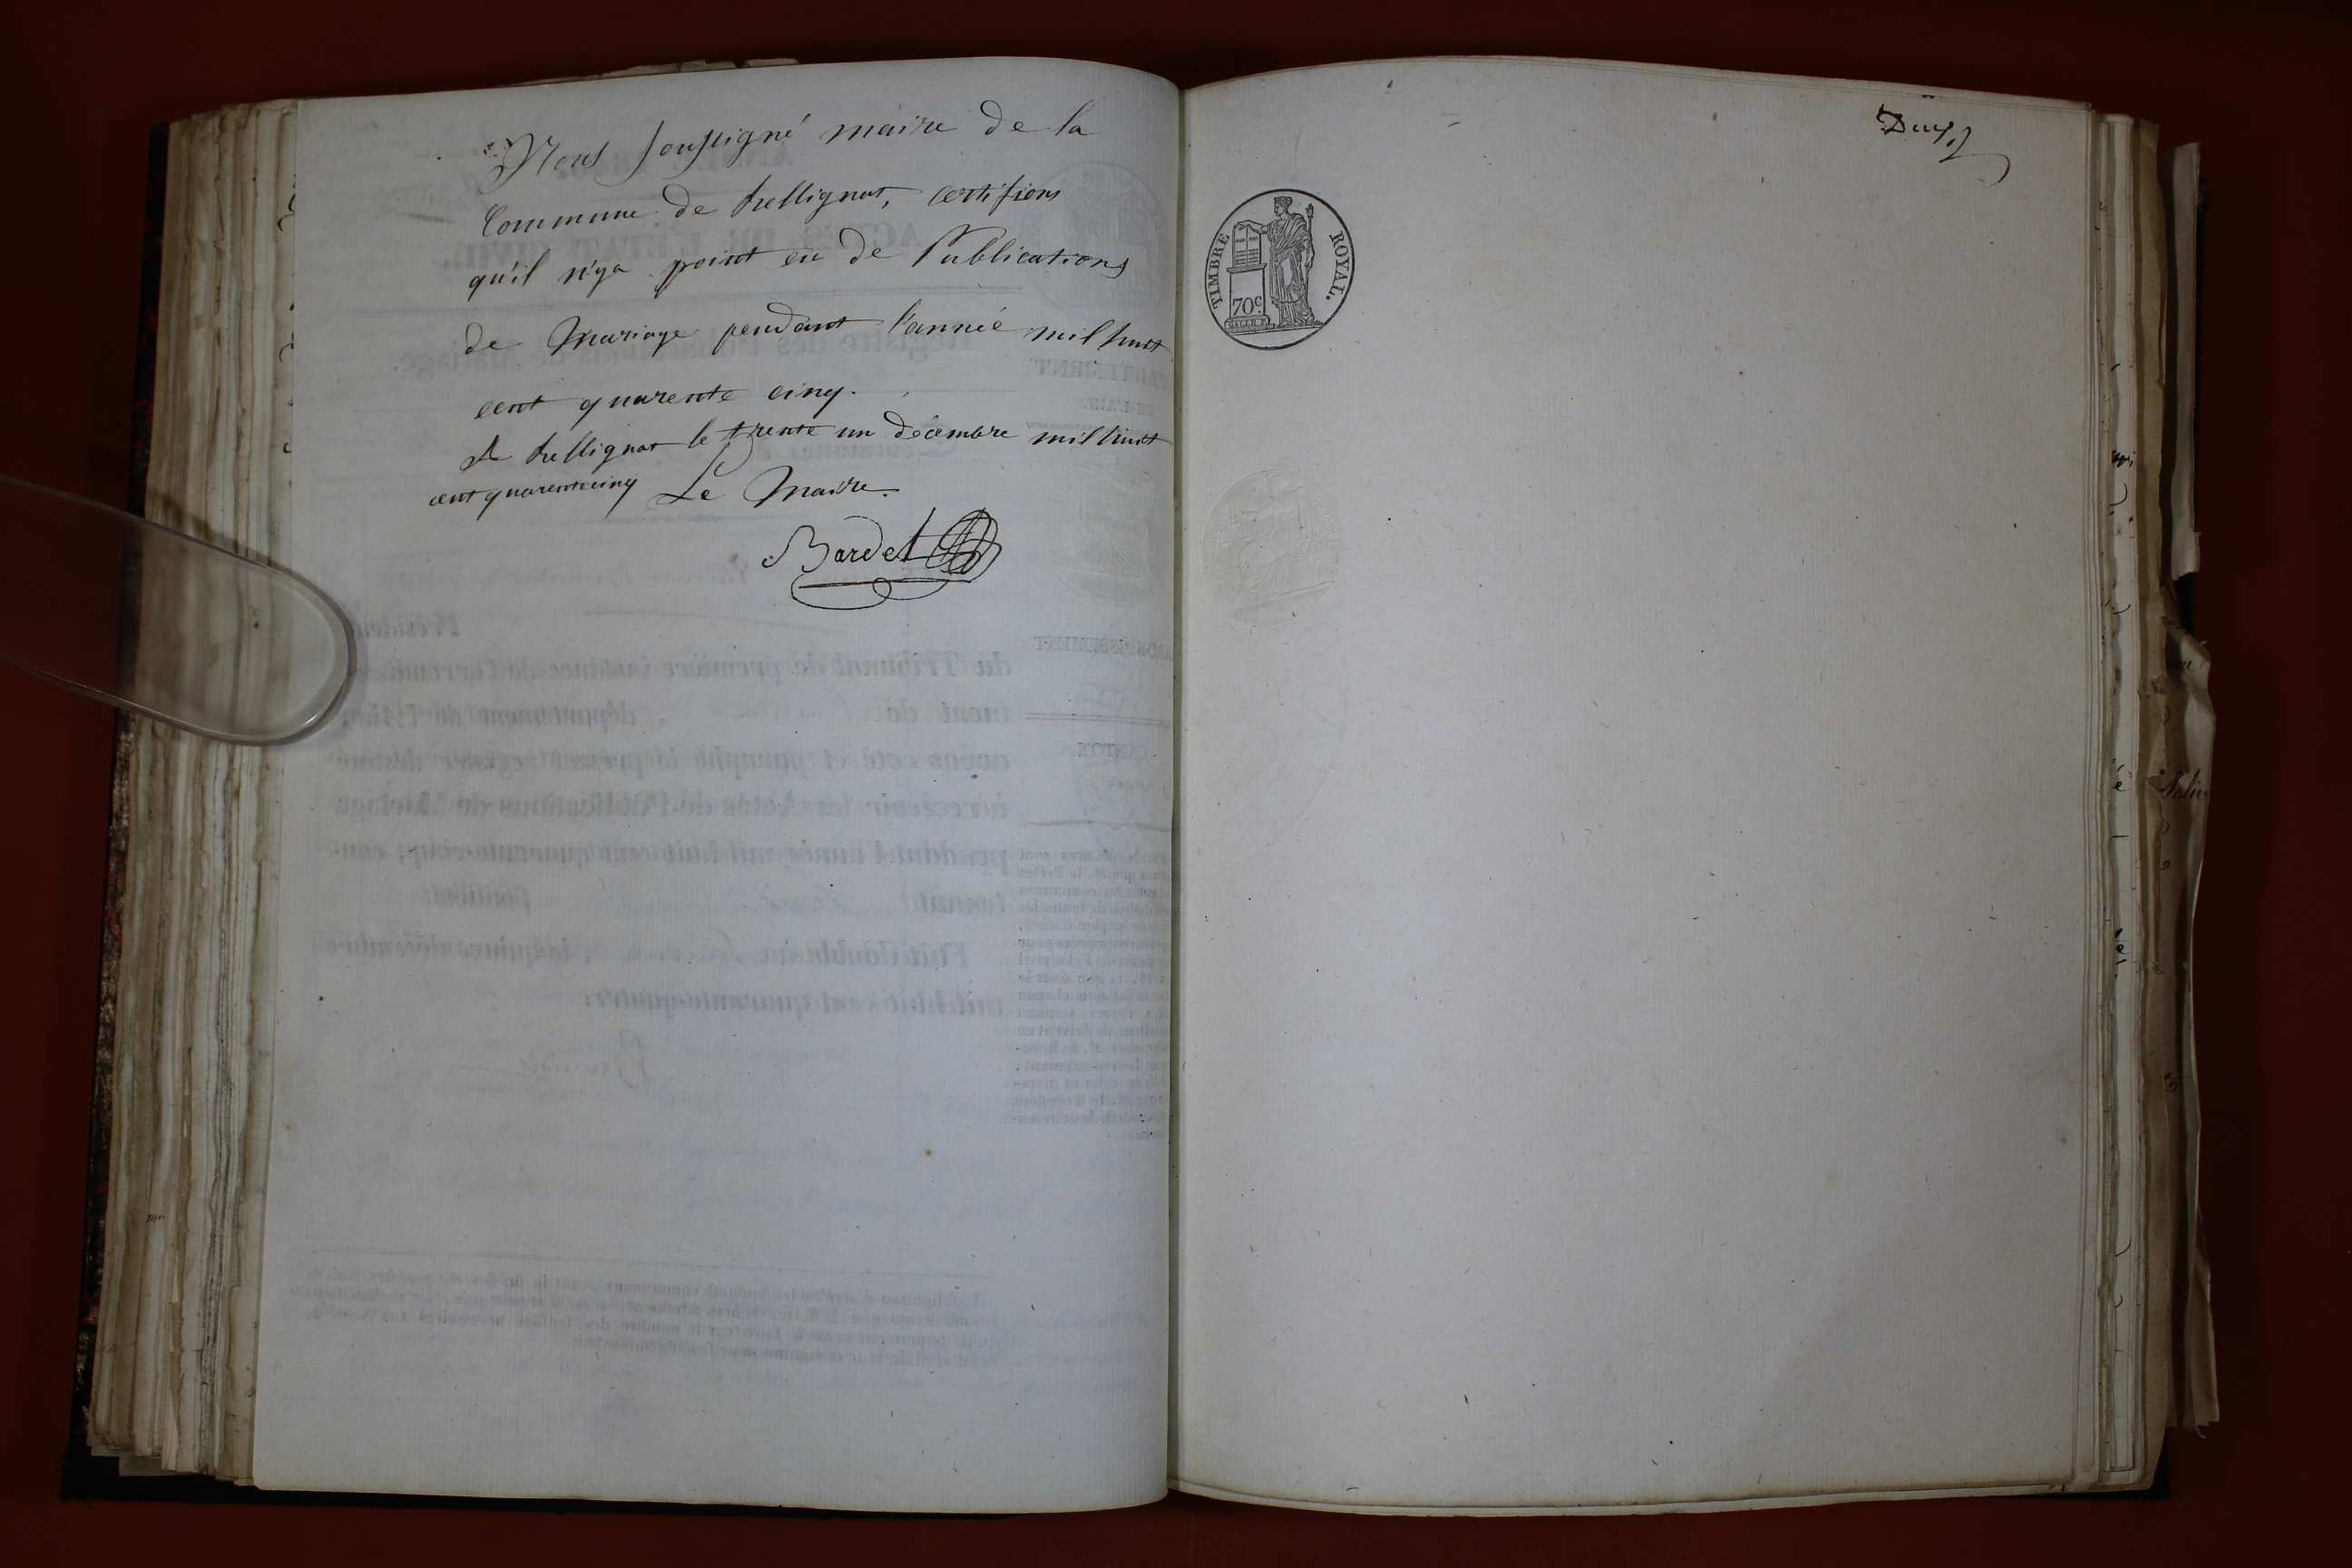 Nous soussigné maire de la
Commune de hellignat, certifions
qu'il n'ya point eu de Publications
de Mariage pendant l'année mil huit
cent quarente cinq.
A hellignat le trente un décembre mil huit
cent quarente cinq Le Maire.
Bardet
TIMBRE ROYAL.
70c